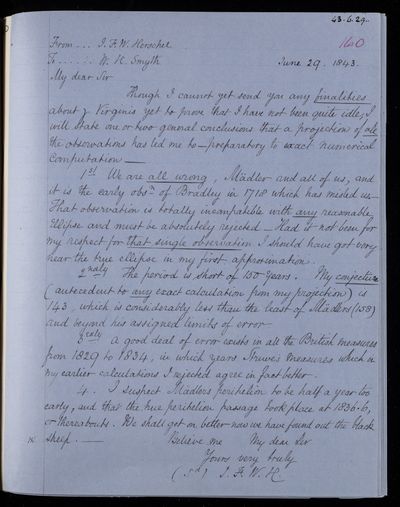 43.6.29.
160
From ... J. F. W. Herschel
To ...... W. H. Smyth
June 29. 1843.
My dear Sir
Though I cannot yet send you any finalities
about γ Virginis yet to prove that I have not been quite idle, I
will state one or two general conclusions that a projection of all
the observations has led me to — preparatory to exact numerical
Computation —
1st We are all wrong, Mädler and all of us, and
it is the early obsn of Bradley in 1718 which has misled us —
That observation is totally incompatible with any reasonable
Ellipse and must be absolutely rejected — Had it not been for
my respect for that single observation I should have got very
near the true ellipse in my first approximation.
2ndly The period is short of 150 years. My conjecture
(antecedent to any exact calculation from my projection) is
143, which is considerably less than the least of Mädlers (158)
and beyond his assigned limits of error
3rdly A good deal of error exists in all the British measures
from 1829 to 1834, in which years Struves measures which in
my earlier calculations I rejected agree in fact better.
4. I suspect Mädlers perihelion to be half a year too
early, and that the true perihelion passage took place at 1836.6,
or thereabouts. We shall get on better now we have found out the black
sheep. — Believe me My dear Sir
Yours very truly
(sd) J. F. W. H.